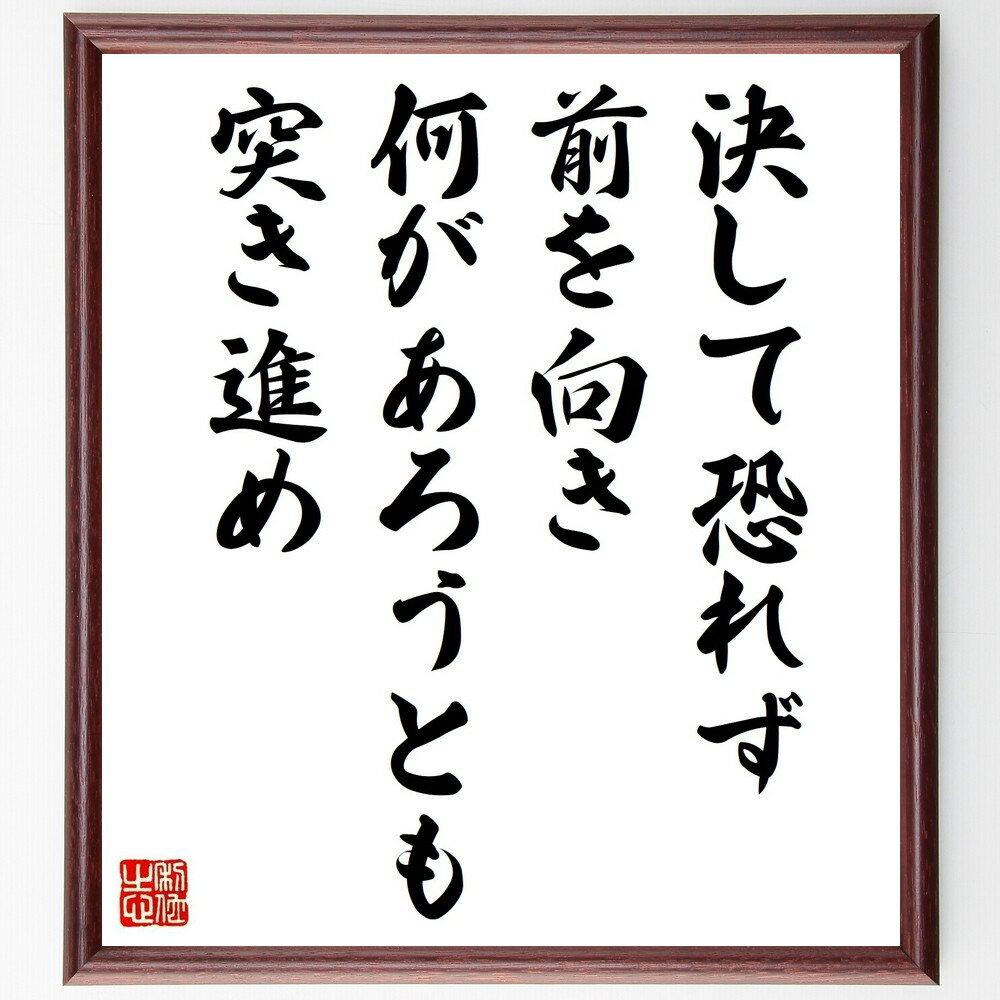 決して恐れず
前を向き
何があろうとも
突き進め